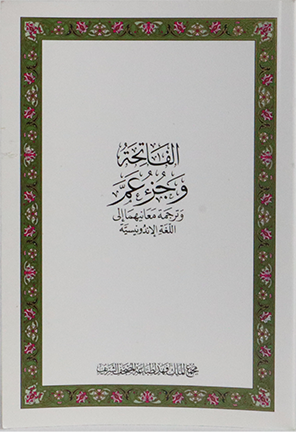 الفَاتِحَة
وَجُزْء عَمَّ
وَتَرجَمَة مَعَانِيهِمَا إِلَى
اللُّغَةِ الإِندُونِيسِيَّة
مجمع الملك فهد لطباعة المصحف الشريف